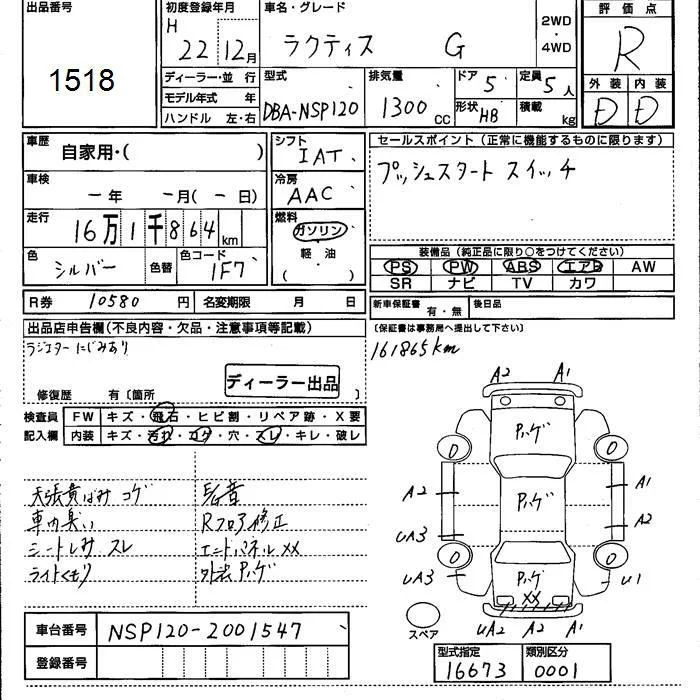 出品番号
1518
初度登録年月
H 22 12月
車名・グレード
ラクティス G
2WD
・
4WD
評価点
R
ディーラー・並 行
モデル年式 年
ハンドル 左・右
型式
DBA-NSP120
排気量
1300 CC
ドア 5
形状 HB
定員 5人
積載 kg
外装 内装
D D
車歴
自家用・( )
車検
ー年 ー月(ー日)
走行
16万1千864km
色
シルバー
色替
色コード
1F7
シフト
IAT
冷房
AAC
燃料
ガソリン
・
軽・油
( )
セールスポイント(正常に機能するものに限ります)
プッシュスタート スイッチ
装備品(純正品に限り○をつけてください)
PS PW ABS エアB AW
SR ナビ TV カワ
R券 10580 円 名変期限 月 日
新車保証書 有・無 後日品
(保証書は事務局へ提出して下さい)
出品店申告欄(不良内容・欠品・注意事項等記載)
ラジエター にじみあり
ディーラー出品
修復歴 有〔箇所 〕
161865km
検査員 FW キズ・飛石・ヒビ割・リペア跡・X要
記入欄 内装 キズ・汚れ・コゲ・穴・スレ・キレ・破レ
天張黄ばみ コゲ
車内臭い Rフロア修正
シートしみ スレ エンドパネル XX
ライトくもり 外装ハゲ
車台番号 NSP120-2001547
登録番号
A2 A1
ハゲ
D D
A2 ハゲ A1
A2
UA3
D D
UA3 ハゲ U1
XX
スペア
UA2 A2 A1
型式指定 類別区分
16673 0001